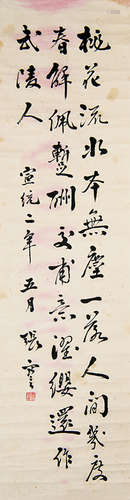 桃花流水本無塵一落人間幾度
春解佩暫酬交甫意濯纓還作
武陵人
宣統二年五月張謇